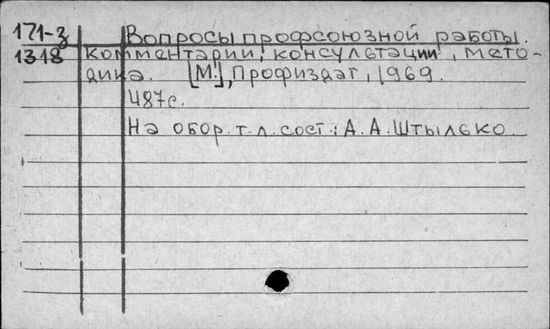 171-з Вопросы профсоюзной работы.
1318 Комментарии, консультации, мето-
дика. [М.], Профиздат, 1969.
487с.
На обор. т. л. сост.: А. А. Штылько.